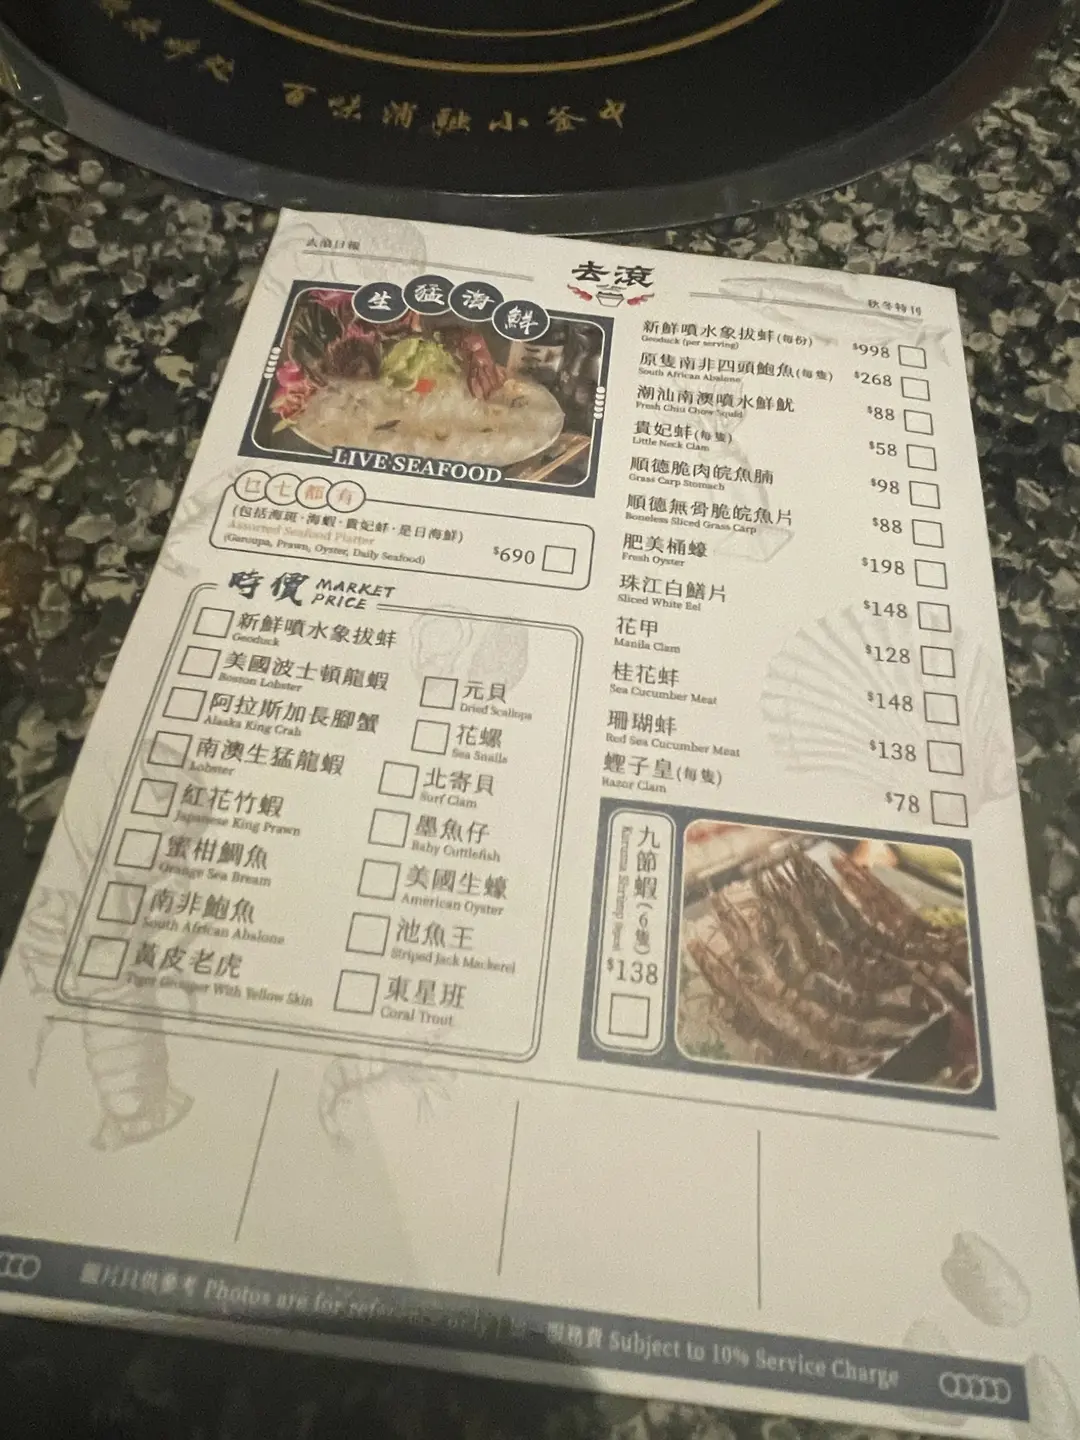 百味消融小釜中
去滾日報
去滾
秋冬特刊
生猛海鮮
LIVE SEAFOOD
乜七都有
(包括海斑·海蝦·貴妃蚌·是日海鮮)
Assorted Seafood Platter
(Garoupa, Prawn, Oyster, Daily Seafood)
$690
時價 MARKET PRICE
新鮮噴水象拔蚌
Geoduck
美國波士頓龍蝦
Boston Lobster
阿拉斯加長腳蟹
Alaska King Crab
南澳生猛龍蝦
Lobster
紅花竹蝦
Japanese King Prawn
蜜柑鯛魚
Orange Sea Bream
南非鮑魚
South African Abalone
黃皮老虎
Tiger Grouper With Yellow Skin
元貝
Dried Scallops
花螺
Sea Snails
北寄貝
Surf Clam
墨魚仔
Baby Cuttlefish
美國生蠔
American Oyster
池魚王
Striped Jack Mackerel
東星班
Coral Trout
新鮮噴水象拔蚌(每份) $998
Geoduck (per serving)
原隻南非四頭鮑魚(每隻) $268
South African Abalone
潮汕南澳噴水鮮魷 $88
Fresh Chiu Chow Squid
貴妃蚌(每隻) $58
Little Neck Clam
順德脆肉皖魚腩 $98
Grass Carp Stomach
順德無骨脆皖魚片 $88
Boneless Sliced Grass Carp
肥美桶蠔 $198
Fresh Oyster
珠江白鱔片 $148
Sliced White Eel
花甲 $128
Manila Clam
桂花蚌 $148
Sea Cucumber Meat
珊瑚蚌 $138
Red Sea Cucumber Meat
蟶子皇(每隻) $78
Razor Clam
九節蝦(6隻)
$138
圖片只供參考 Photos are for reference only
服務費 Subject to 10% Service Charge